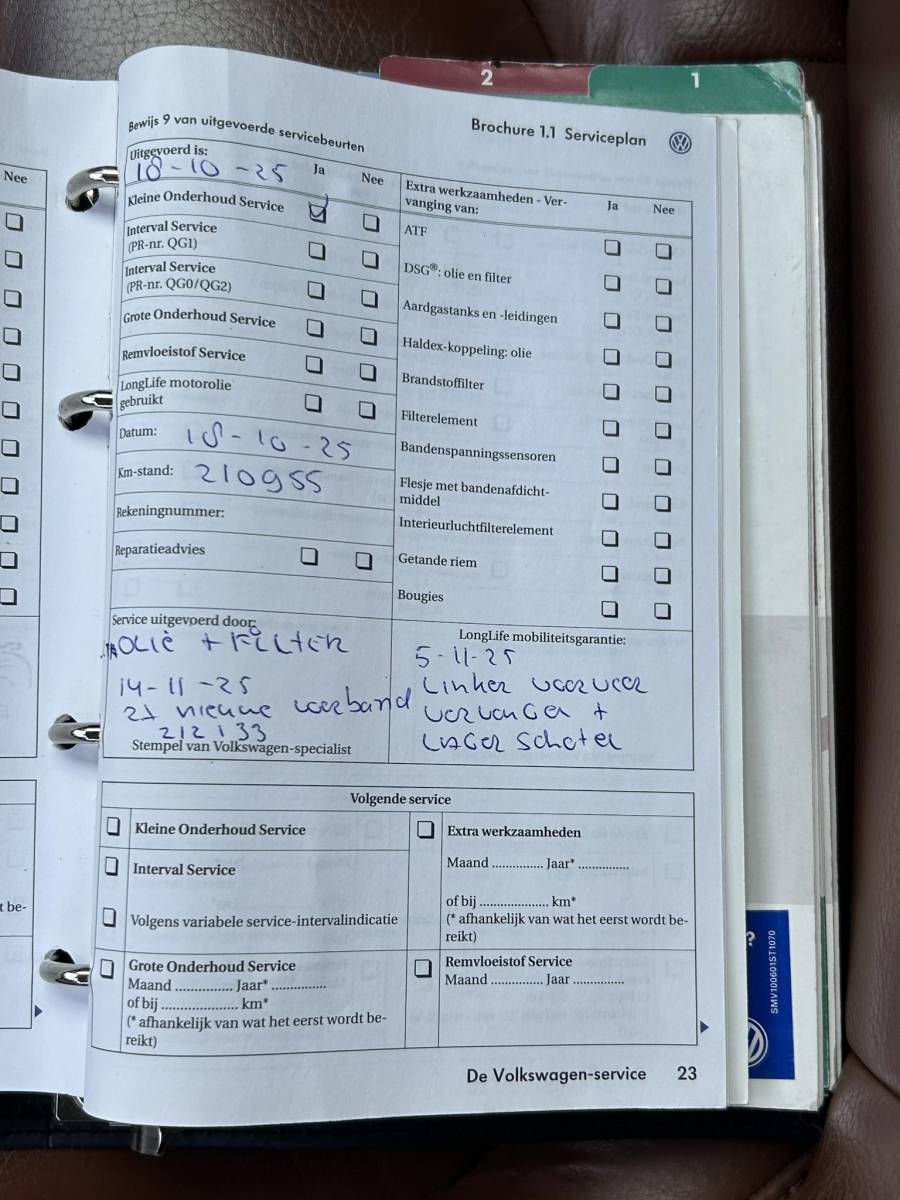 2
1
Nee
Bewijs 9 van uitgevoerde servicebeurten
Brochure 1.1 Serviceplan
Uitgevoerd is:
18-10-25
Ja
Nee
Kleine Onderhoud Service
Interval Service
(PR-nr. QG1)
Interval Service
(PR-nr. QG0/QG2)
Grote Onderhoud Service
Remvloeistof Service
LongLife motorolie
gebruikt
Datum: 18-10-25
Km-stand: 210955
Rekeningnummer:
Reparatieadvies
Extra werkzaamheden - Ver-
vanging van:
Ja
Nee
ATF
DSG®: olie en filter
Aardgastanks en -leidingen
Haldex-koppeling: olie
Brandstoffilter
Filterelement
Bandenspanningssensoren
Flesje met bandenafdicht-
middel
Interieurluchtfilterelement
Getande riem
Bougies
Service uitgevoerd door:
OLIË + FILTER
14-11-25
2x nieuwe voorband
212133
Stempel van Volkswagen-specialist
LongLife mobiliteitsgarantie:
5-11-25
Linker voorveer
vervangen +
LAGER Schotel
Volgende service
Kleine Onderhoud Service
Interval Service
Volgens variabele service-intervalindicatie
Grote Onderhoud Service
Maand .............. Jaar* ..............
of bij .................... km*
(* afhankelijk van wat het eerst wordt be-
reikt)
Extra werkzaamheden
Maand ............. Jaar* .............
of bij .................. km*
(* afhankelijk van wat het eerst wordt be-
reikt)
Remvloeistof Service
Maand ............. Jaar .............
t be-
De Volkswagen-service 23
?
SMV100601ST1070